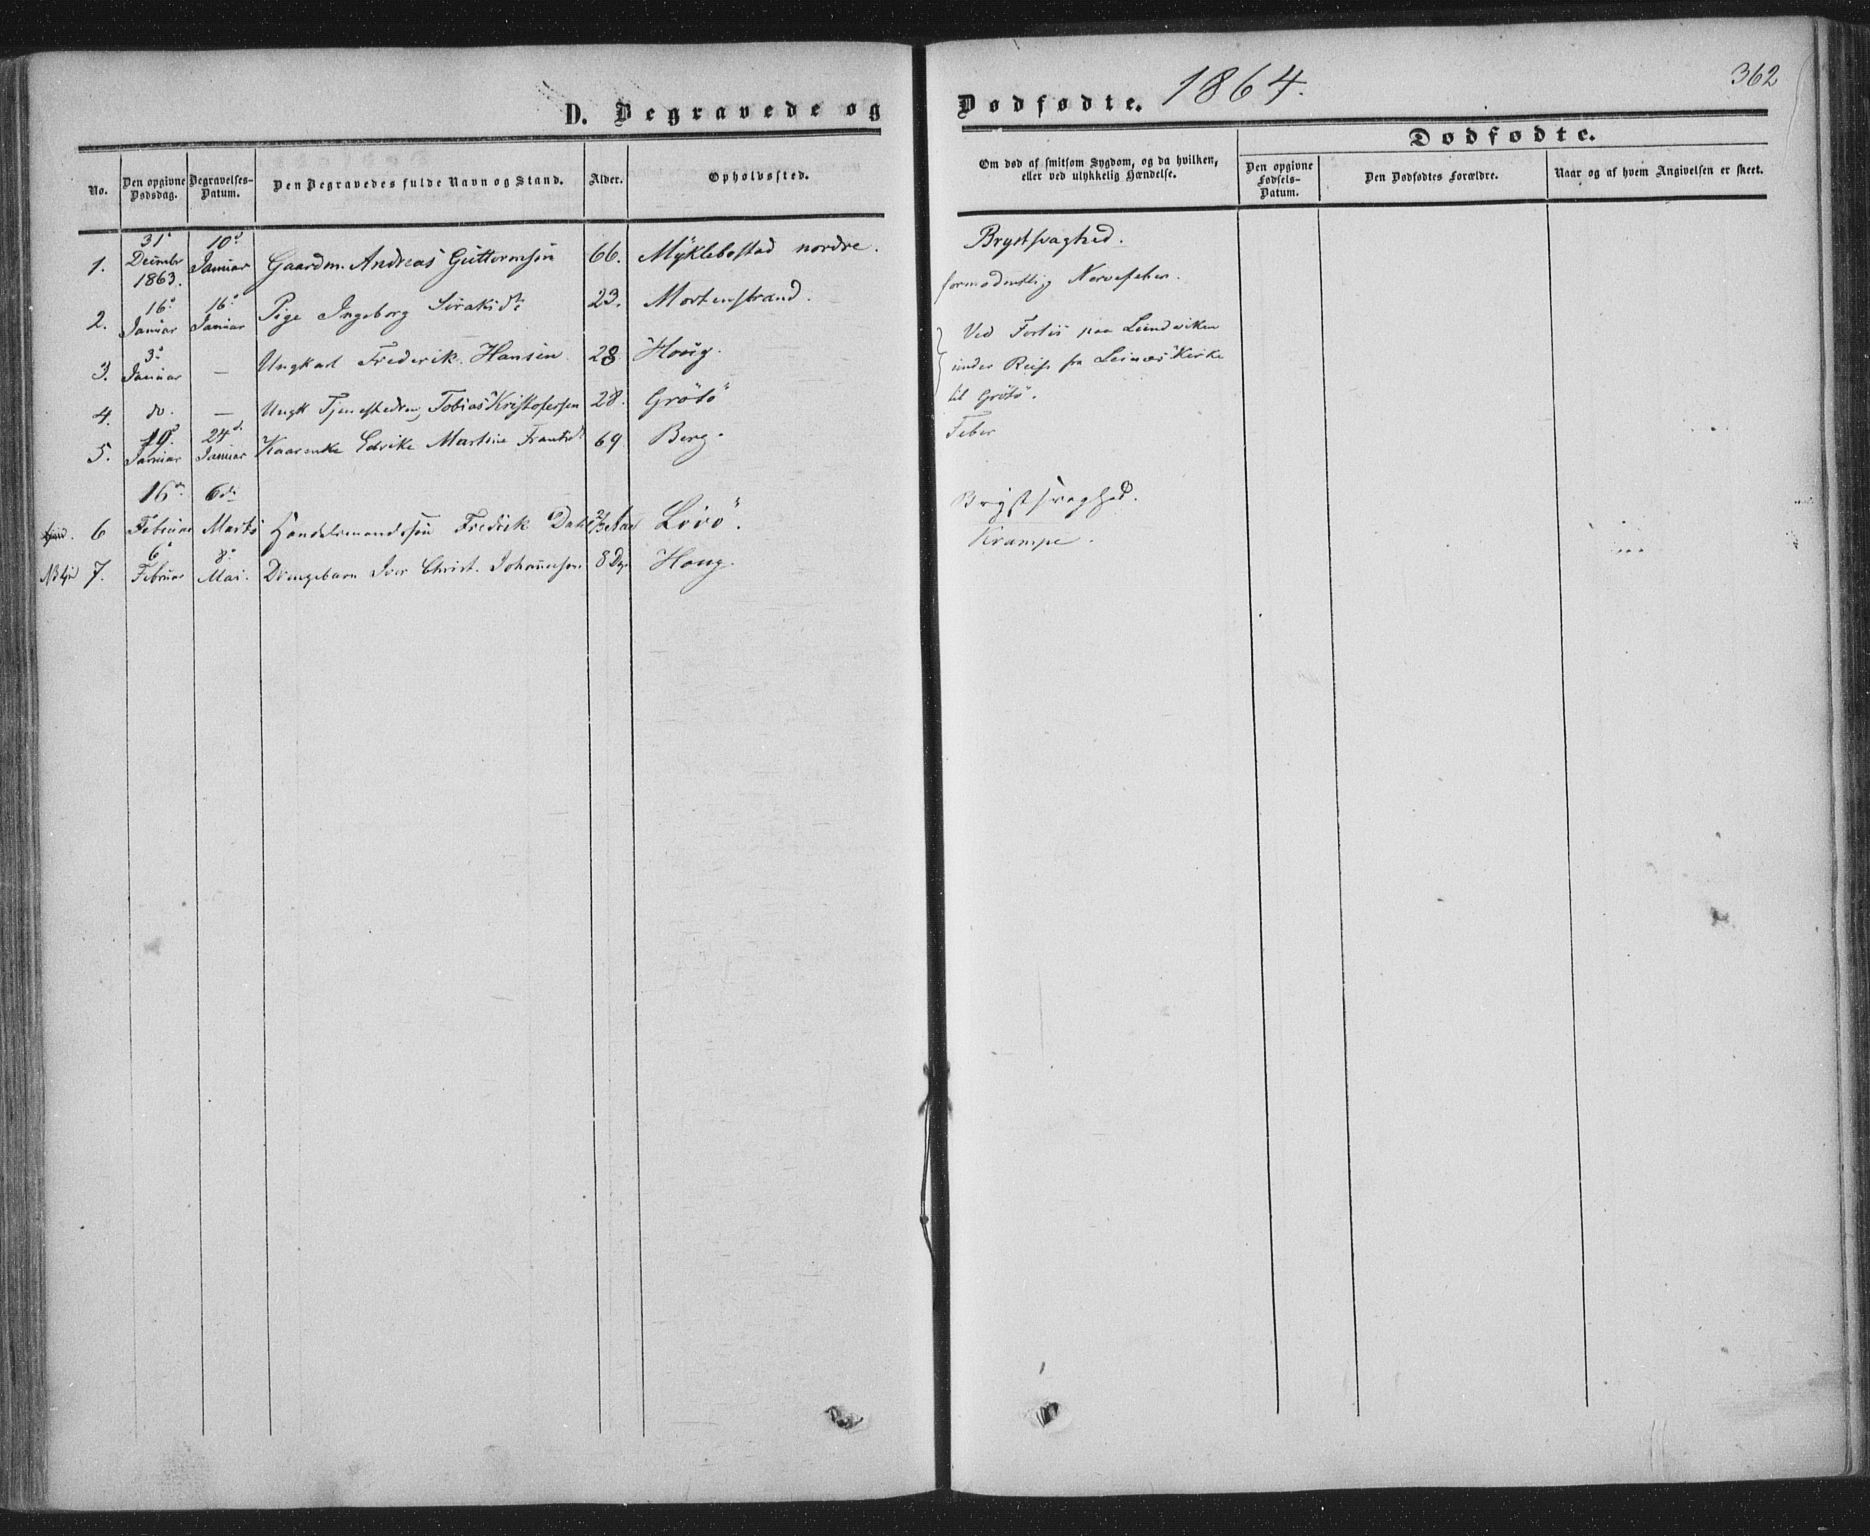 1864.
362
D. Begravede og
Dødfødte.
No.
Den opgivne Dødsdag.
Begravelses-Datum.
Den Begravedes fulde Navn og Stand.
Alder.
Opholdssted.
Om død af smitsom Sygdom, og da hvilken, eller ved ulykkelig Hændelse.
Dødfødte.
Den opgivne Fødsels-Datum.
Den Dødfødtes Forældre.
Naar og af hvem Angivelsen er skeet.
1. 31 Decimbr 1863. 10 Januar Gaardm. Andreas Guttormsøn 66. Myklebostad nordre. Brystsvaghed.
2. 16 Januar 16 Januar Pige Ingeborg 23. Mortenstrand. formodentlig Nervefeber.
3. 3 Januar — Ungkarl Frederik Hansen 28 Houg. Ved Forlis paa Lundviken
under Reise fra Leines Kirke
til Grøtö.
4. do. — Ungk Tobias Kristofersen 28. Grötö
5. 19 Januar 24 Januar Martine 69 Berg. Feber
6 16 Februar 6 Marts Handelsmandssøn Fredrik Dahl Lövö. Brystsvaghed.
7. 6 Februar 8 Mai. Drengebarn Iver Christ. Johannesen 8 Dg. Houg. Krampe.